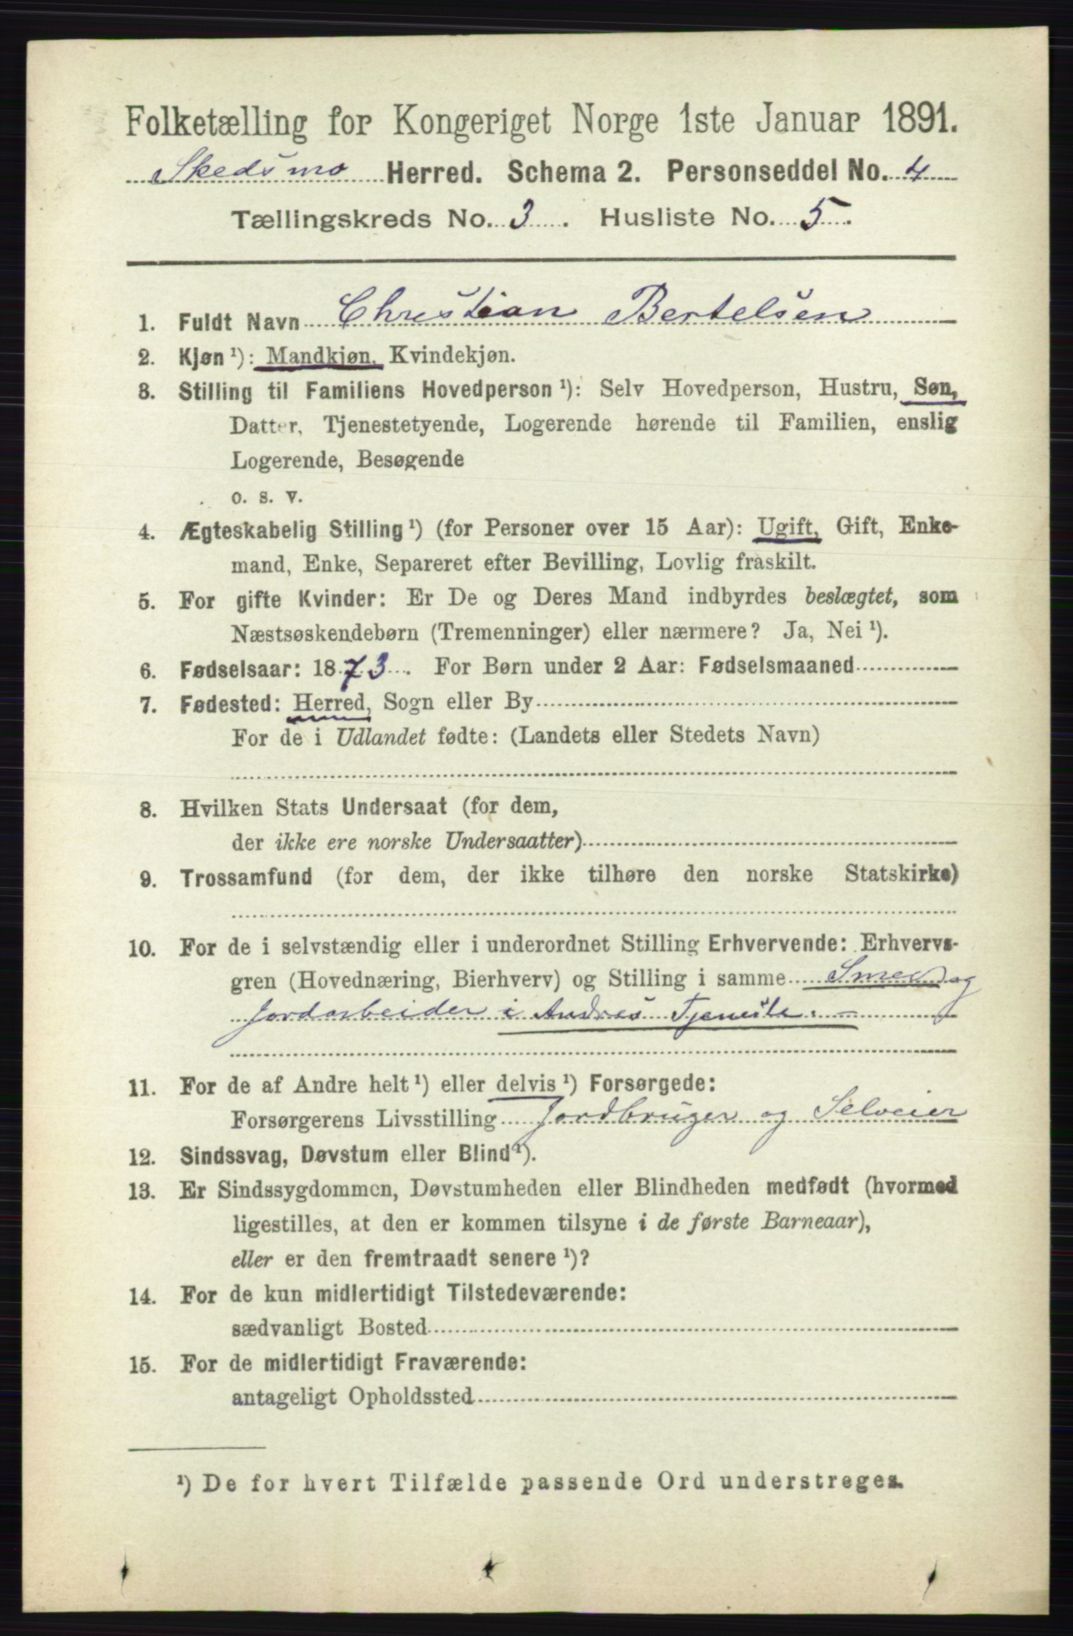 Folketælling for Kongeriget Norge 1ste Januar 1891.
Skedsmo Herred. Schema 2. Personseddel No. 4
Tællingskreds No. 3. Husliste No. 5.
1. Fuldt Navn Christian Bertelsen
2. Kjøn ¹): Mandkjøn, Kvindekjøn.
3. Stilling til Familiens Hovedperson ¹): Selv Hovedperson, Hustru, Søn,
Datter, Tjenestetyende, Logerende hørende til Familien, enslig
Logerende, Besøgende
o. s. v.
4. Ægteskabelig Stilling ¹) (for Personer over 15 Aar): Ugift, Gift, Enke-
mand, Enke, Separeret efter Bevilling, Lovlig fraskilt.
5. For gifte Kvinder: Er De og Deres Mand indbyrdes beslægtet, som
Næstsøskendebørn (Tremenninger) eller nærmere? Ja, Nei ¹).
6. Fødselsaar: 1873. For Børn under 2 Aar: Fødselsmaaned
7. Fødested: Herred, Sogn eller By
For de i Udlandet fødte: (Landets eller Stedets Navn)
8. Hvilken Stats Undersaat (for dem,
der ikke ere norske Undersaatter)
9. Trossamfund (for dem, der ikke tilhøre den norske Statskirke)
10. For de i selvstændig eller i underordnet Stilling Erhvervende: Erhvervs-
gren (Hovednæring, Bierhverv) og Stilling i samme Smed og
Jordarbeider i Andres Tjeneste. –
11. For de af Andre helt ¹) eller delvis ¹) Forsørgede:
Forsørgerens Livsstilling Jordbruger og Selveier
12. Sindssvag, Døvstum eller Blind ¹).
13. Er Sindssygdommen, Døvstumheden eller Blindheden medfødt (hvormed
ligestilles, at den er kommen tilsyne i de første Barneaar),
eller er den fremtraadt senere ¹)?
14. For de kun midlertidigt Tilstedeværende:
sædvanligt Bosted
15. For de midlertidigt Fraværende:
antageligt Opholdssted
¹) De for hvert Tilfælde passende Ord understreges.